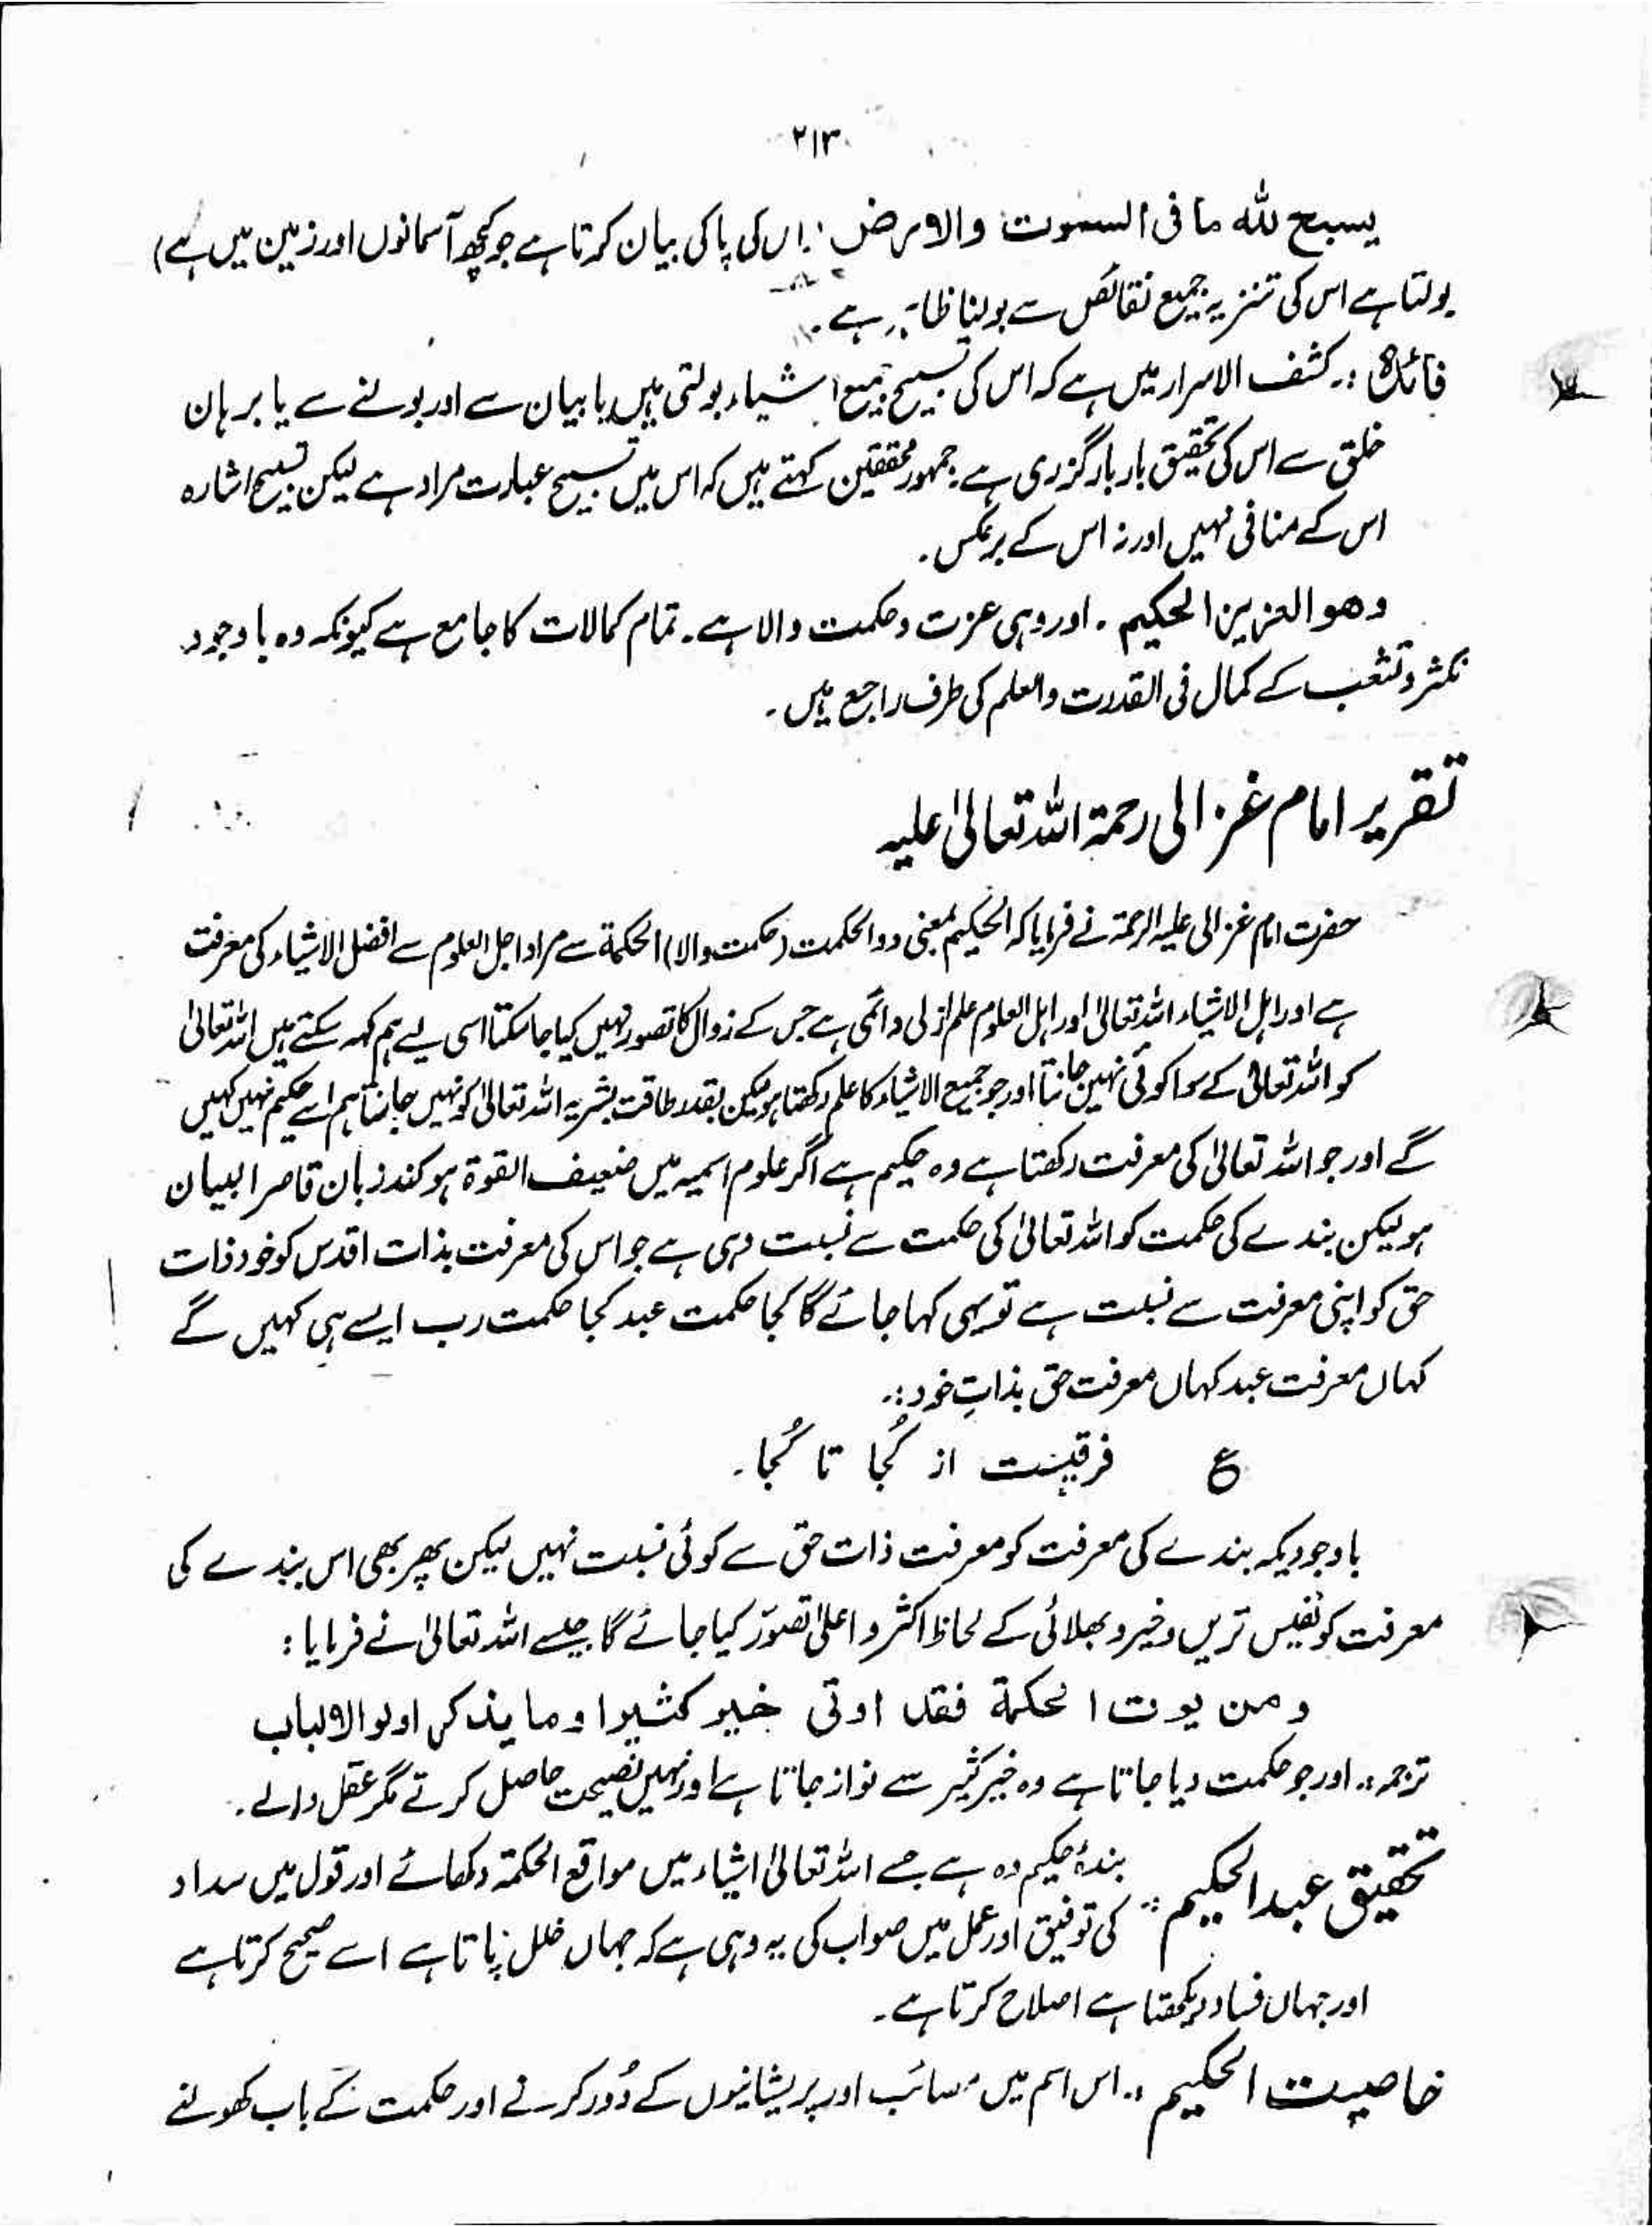 ۲۱۳
یسبح للہ ما فی السمٰوت والارض : اس کی پاکی بیان کرتا ہے جو کچھ آسمانوں اور زمین میں ہے)
بولتا ہے اس کی تنزیہ جمیع نقائص سے بولنا ظاہر ہے۔
فائدہ :۔ کشف الاسرار میں ہے کہ اس کی تسبیح جمیع اشیاء بولتی ہیں یا بیان سے اور بولنے سے یا برہان
خلق سے اس کی تحقیق بار بار گزری ہے جمہور محققین کہتے ہیں کہ اس میں تسبیح عبارت مراد ہے لیکن تسبیح اشارہ
اس کے منافی نہیں اور نہ اس کے برعکس۔
وھو العزیز الحکیم ۔ اور وہی عزت و حکمت والا ہے۔ تمام کمالات کا جامع ہے کیونکہ وہ باوجود
تکثر و تشعب کے کمال فی القدرت والعلم کی طرف راجع ہیں۔
تقریر امام غزالی رحمۃ اللہ تعالیٰ علیہ
حضرت امام غزالی علیہ الرحمۃ نے فرمایا کہ الحکیم بمعنی ذوالحکمت (حکمت والا) الحکمۃ سے مراد اجل العلوم سے افضل الاشیاء کی معرفت
ہے اور اہل الاشیاء اللہ تعالیٰ اور اہل العلوم علم ازلی دائمی ہے جس کے زوال کا تصور نہیں کیا جا سکتا اسی لیے ہم کہہ سکتے ہیں اللہ تعالیٰ
کو اللہ تعالیٰ کے سوا کوئی نہیں جانتا اور جو جمیع الاشیاء کا علم رکھتا ہو لیکن بقدر طاقت بشریہ اللہ تعالیٰ کو نہیں جانتا ہم اسے حکیم نہیں کہیں
گے اور جو اللہ تعالیٰ کی معرفت رکھتا ہے وہ حکیم ہے اگر علوم اسمیہ میں ضعیف القوۃ ہو کند زبان قاصر البیان
ہو لیکن بندے کی حکمت کو اللہ تعالیٰ کی حکمت سے نسبت وہی ہے جو اس کی معرفت بذات اقدس کو خود ذات
حق کو اپنی معرفت سے نسبت ہے تو یہی کہا جائے گا کجا حکمت عبد کجا حکمت رب ایسے ہی کہیں گے
کہاں معرفت عبد کہاں معرفت حق بذاتِ خود :۔
ع فرقیست از کُجا تا کُجا۔
باوجودیکہ بندے کی معرفت کو معرفت ذات حق سے کوئی نسبت نہیں لیکن پھر بھی اس بندے کی
معرفت کو نفیس تریں و خیر و بھلائی کے لحاظ اکثر و اعلیٰ تصوّر کیا جائے گا جیسے اللہ تعالیٰ نے فرمایا :
ومن یوت الحکمۃ فقد اوتی خیر کثیرا وما یذکر اولوا الالباب
ترجمہ :۔ اور جو حکمت دیا جاتا ہے وہ خیر کثیر سے نواز جاتا ہے اور نہیں نصیحت حاصل کرتے مگر عقل والے۔
تحقیق عبد الحکیم :۔ بندۂ حکیم وہ ہے جسے اللہ تعالیٰ اشیاء میں مواقع الحکمۃ دکھائے اور قول میں سداد
کی توفیق اور عمل میں صواب کی یہ وہی ہے کہ جہاں خلل پاتا ہے اسے صحیح کرتا ہے
اور جہاں فساد دیکھتا ہے اصلاح کرتا ہے۔
خاصیت الحکیم :۔ اس اسم میں مصائب اور پریشانیوں کے دُور کرنے اور حکمت کے باب کھولنے